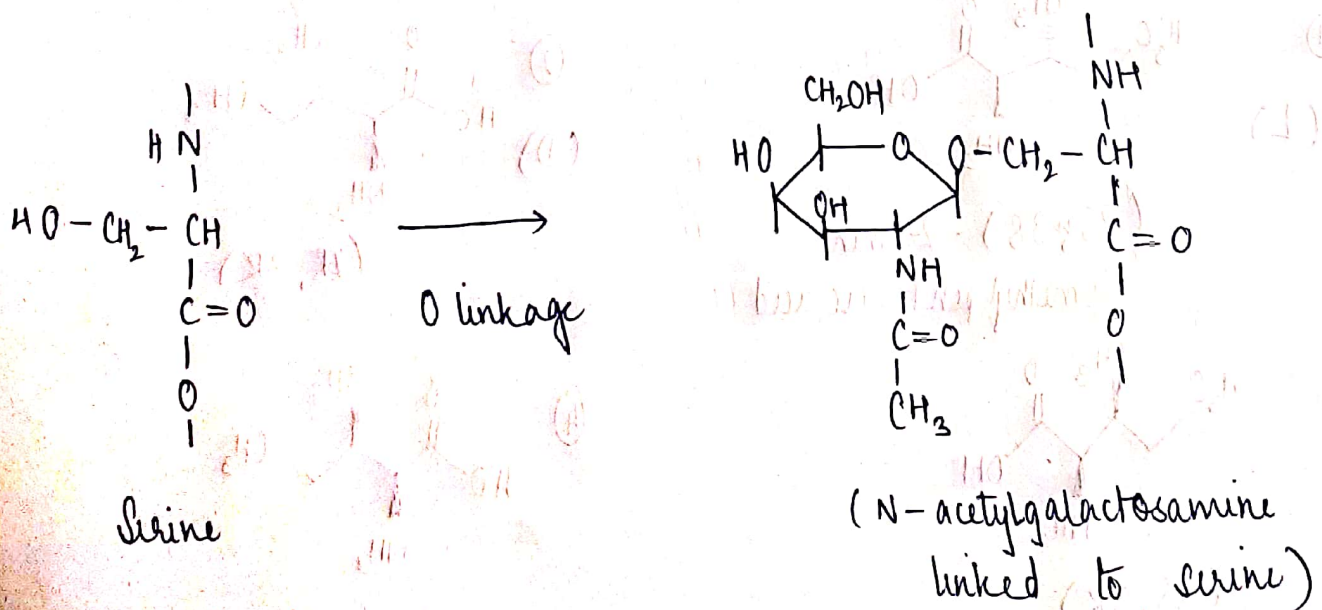 H N
HO-CH₂-CH
C=O
O
Serine
O linkage
NH
CH₂OH
HO
O
O-CH₂-CH
OH
C=O
NH
O
C=O
CH₃
(N-acetylgalactosamine
linked to serine)